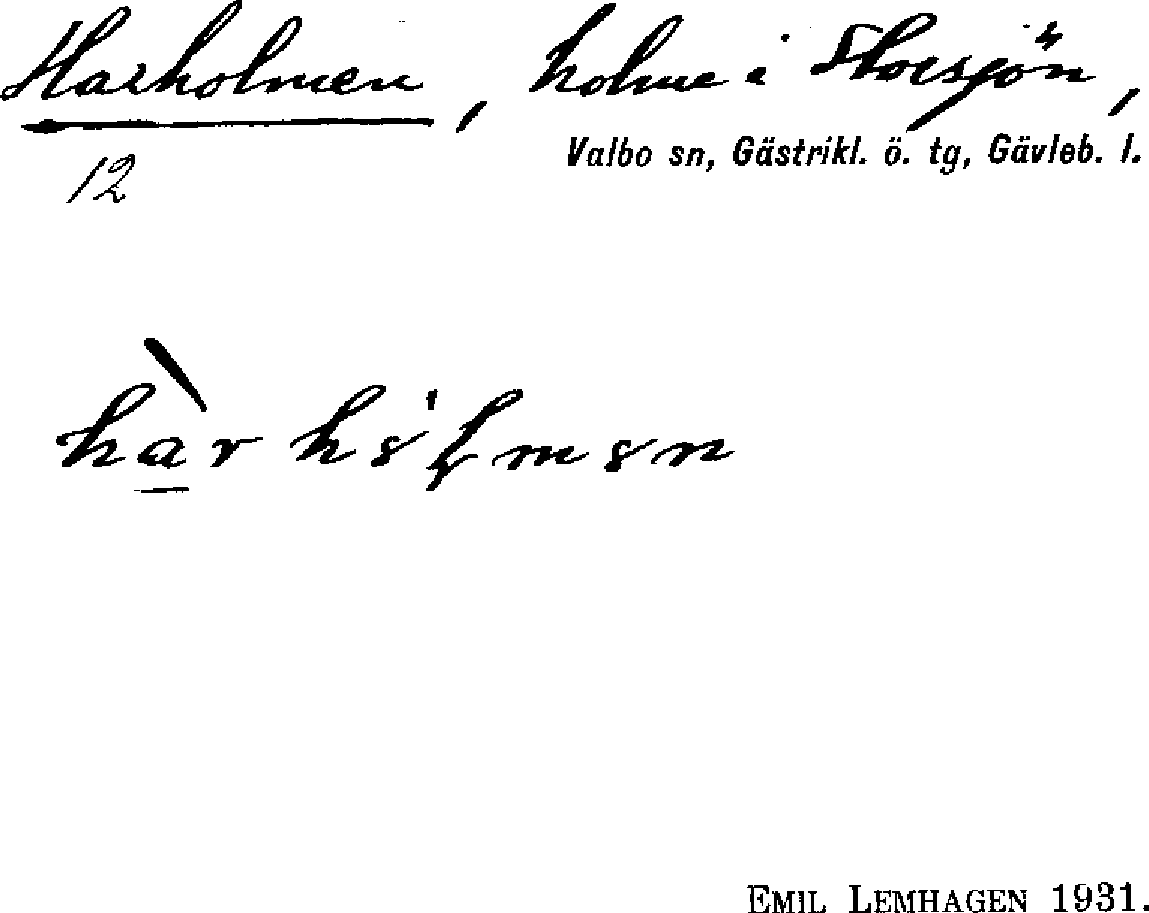 Harholmen, holme i Storsjön,
Valbo sn, Gästrikl. ö. tg, Gävleb. l.
12
EMIL LEMHAGEN 1931.